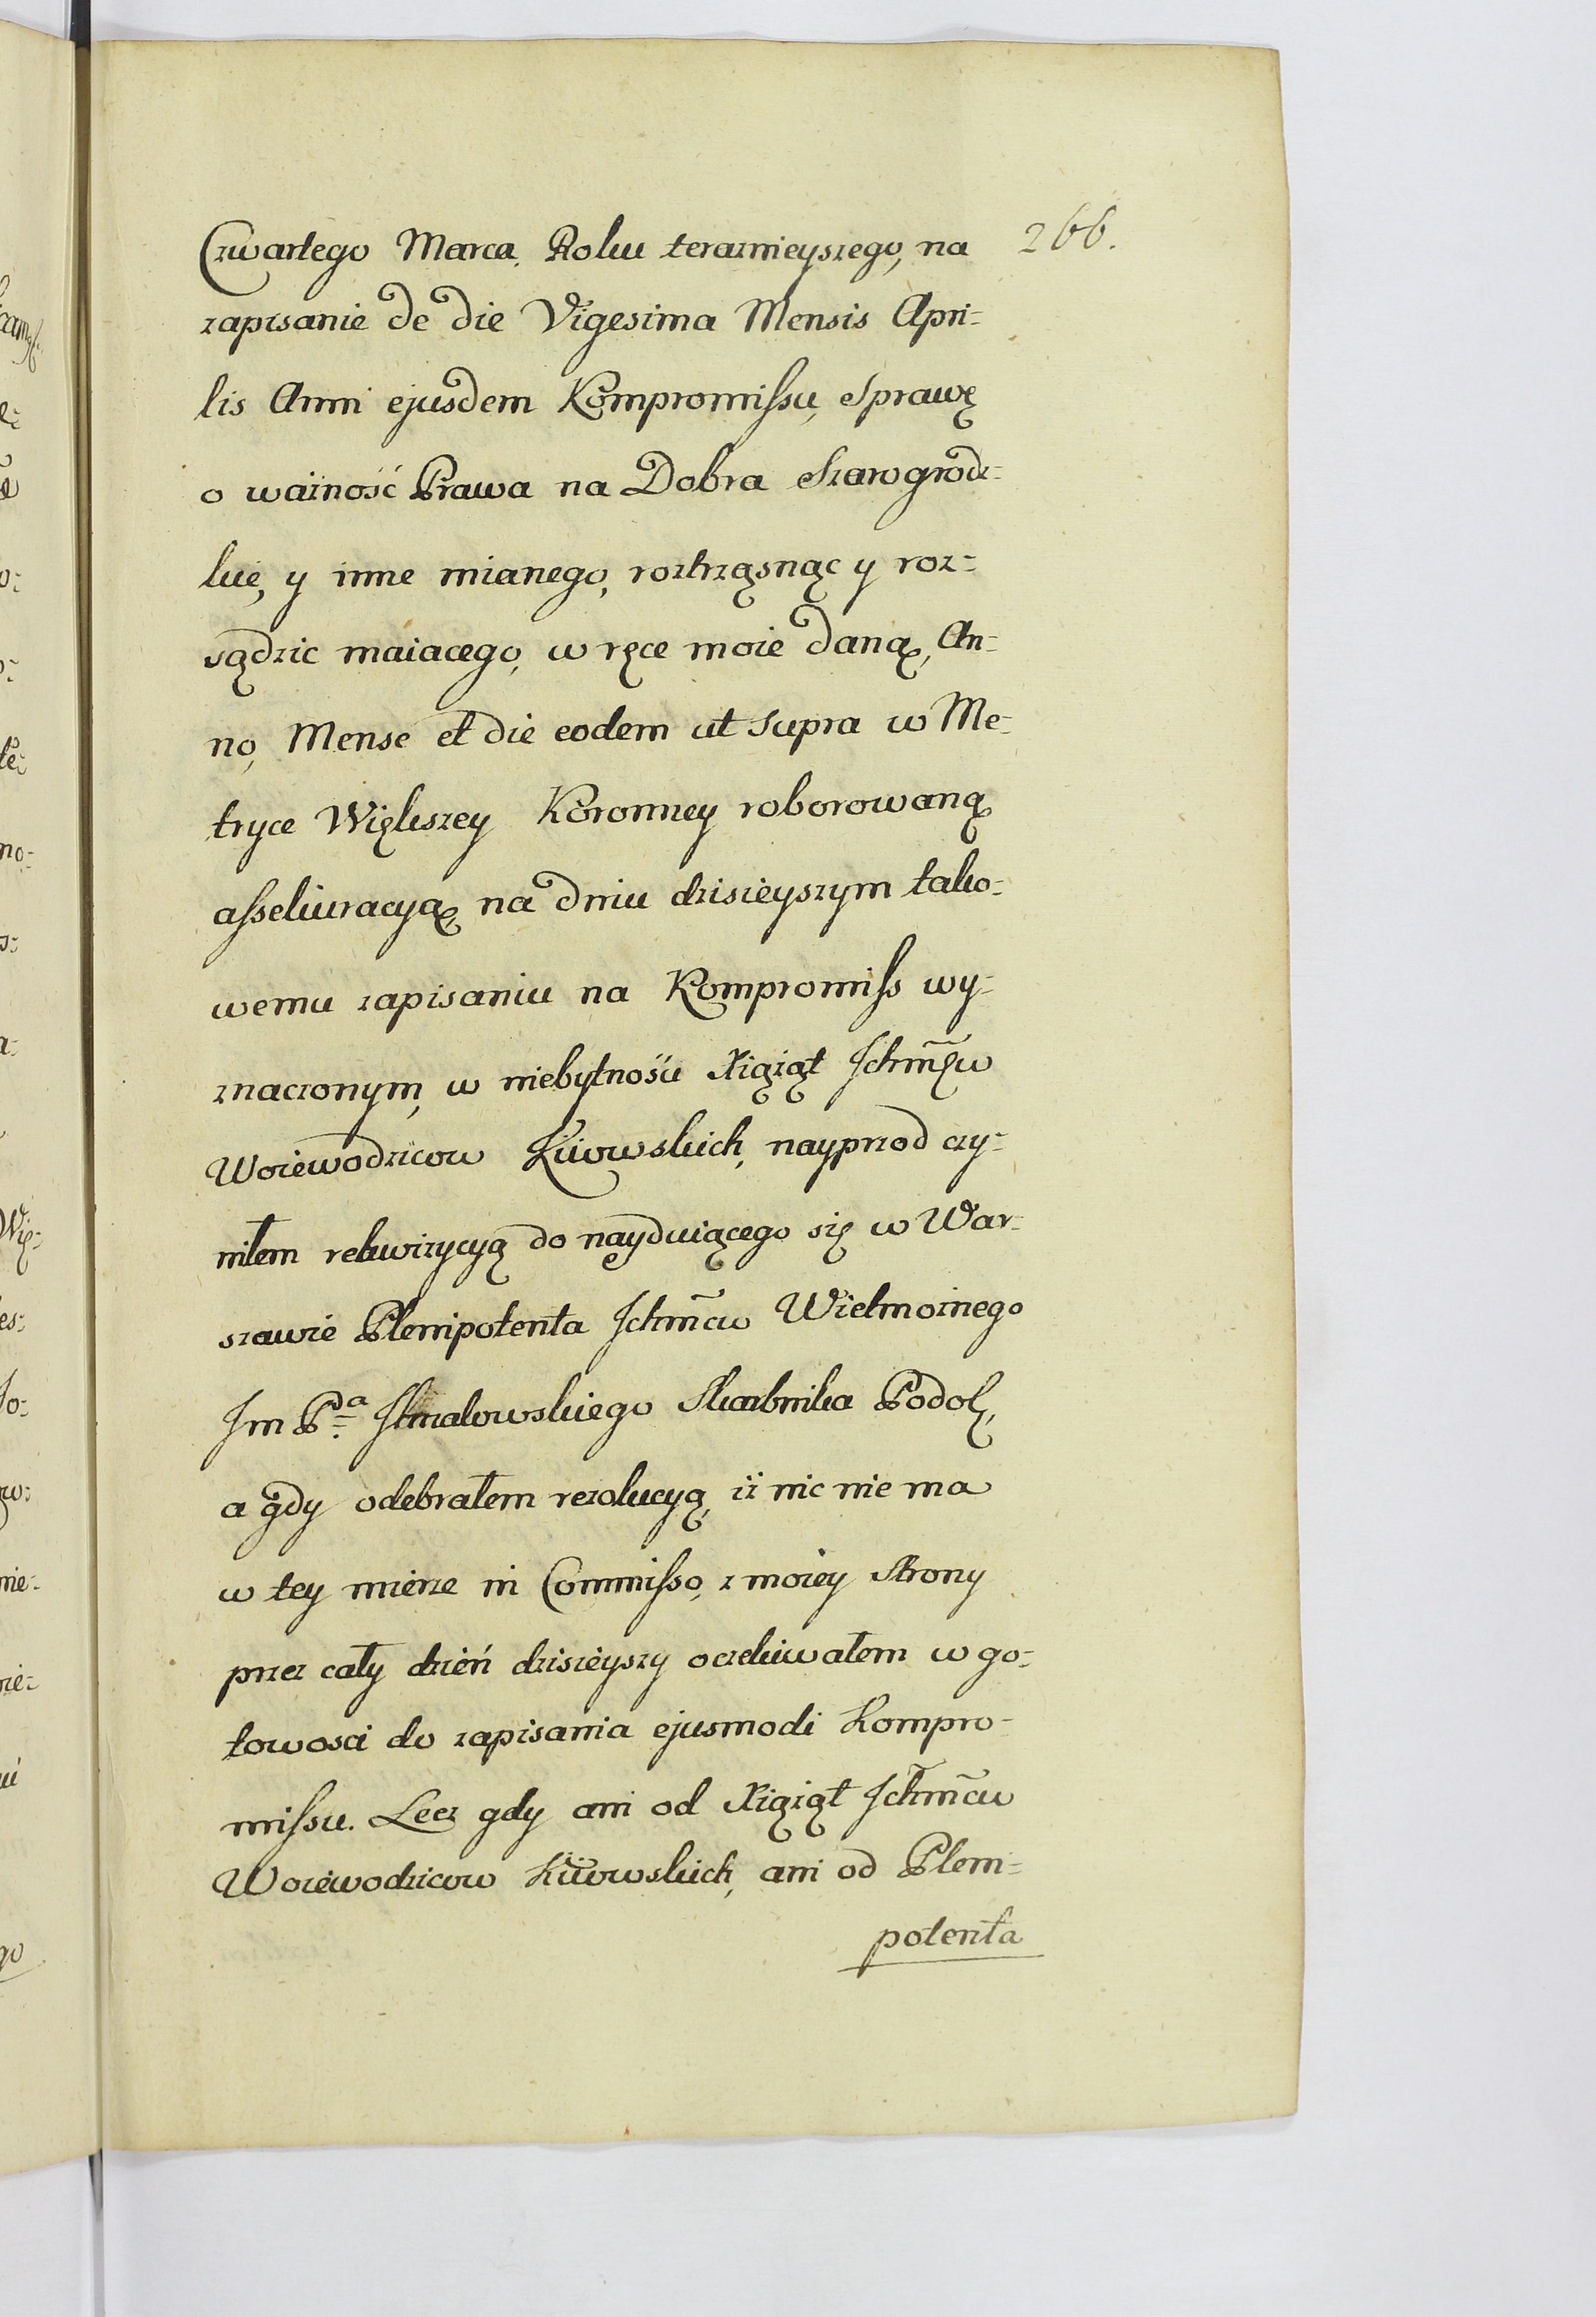 266.
Czwartego Marca Roku teraznieyszego, na
zapisanie de die Vigesima Mensis Apri=
lis Anni ejusdem Kompromissu, Sprawę
o ważność Prawa na Dobra Szarogrodz=
kie, y inne mianego, roztrząsnąc y roz=
sądzic maiacego, w ręce moie daną, An=
no, Mense et die eodem ut Supra w Me=
tryce Większey Koronney roborowaną
assekuracyą na dniu dzisieyszym tako=
wemu zapisaniu na Kompromiss wy=
znaczonym, w niebytnośći Xiążąt Ichmćw
Woiewodzicow Kiiowskich, nayprzod czy=
niłem rekwizycyą do nayduiącego się w War=
szawie Plenipotenta Ichmcw Wielmożnego
Jm Pa Skarbnika Podol,
a gdy odebrałem rezolucyą, iż nic nie ma
w tey mierze in Commisso, z moiey Strony
przez cały dzień dzisieyszy oczekiwałem w go=
towosci do zapisania ejusmodi Kompro=
missu. Lecz gdy ani od Xiążąt Ichmcw
Woiewodzicow Kiiowskich, ani od Pleni=
potenta